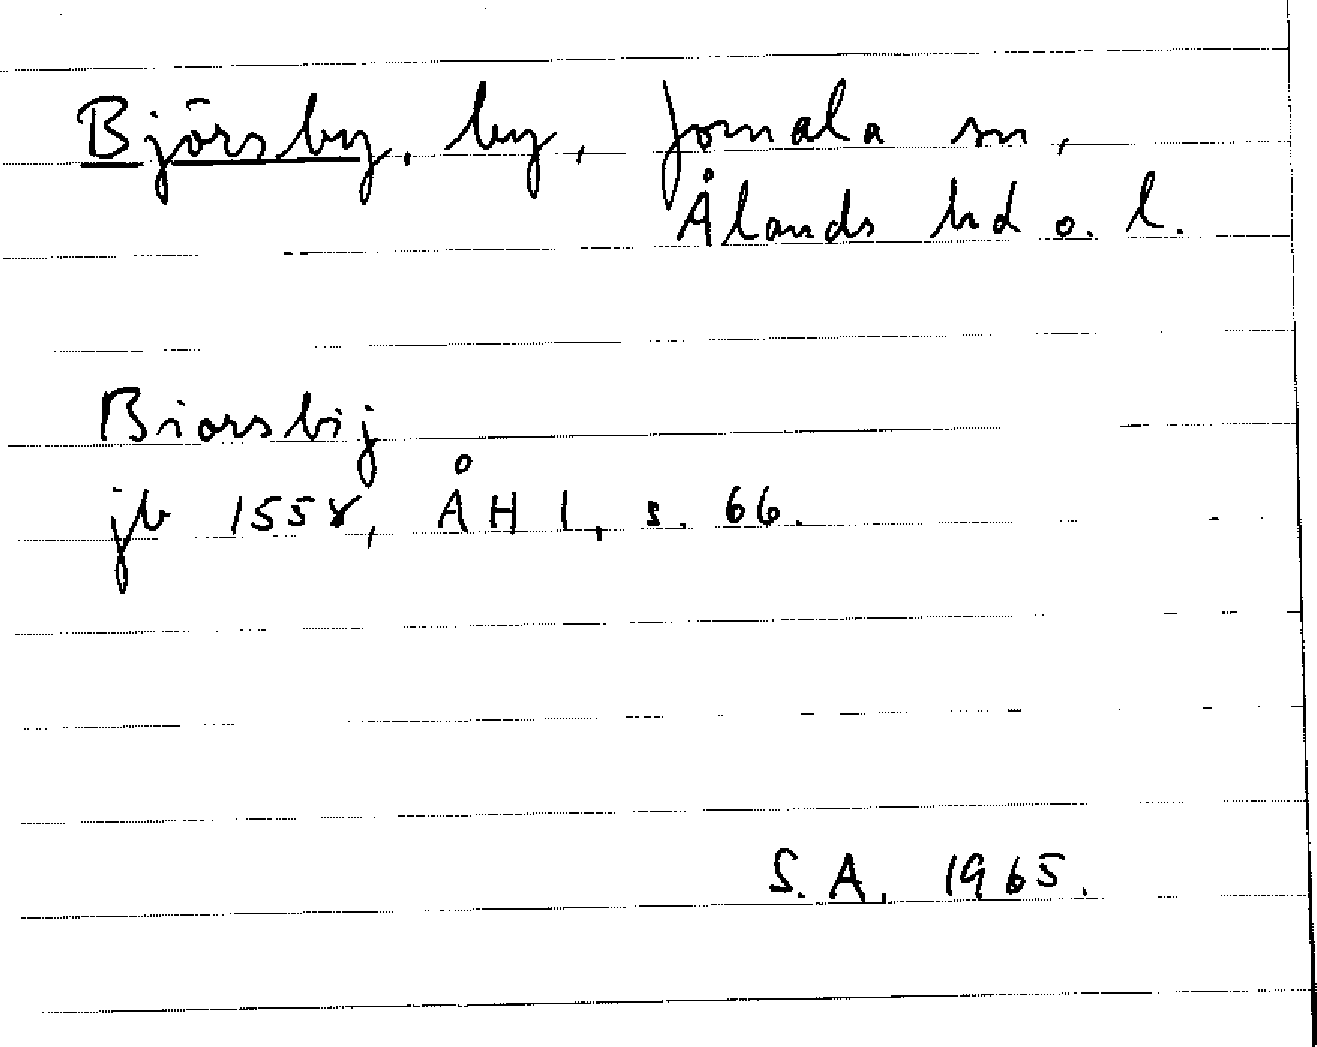 Björsby, by, Jomala sn,
Ålands hd o. l.
Biorsbij
jb 1558, ÅH 1, s. 66.
S. A. 1965.